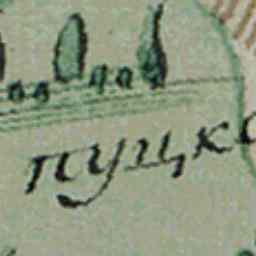 пуцко